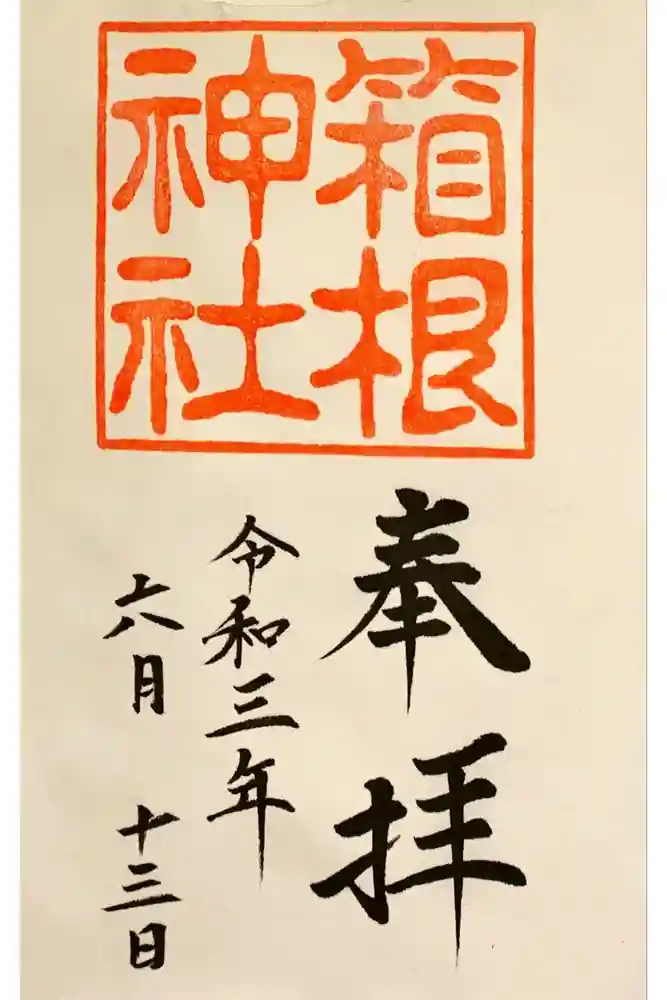 箱根
神社
奉拝
令和三年
六月 十三日